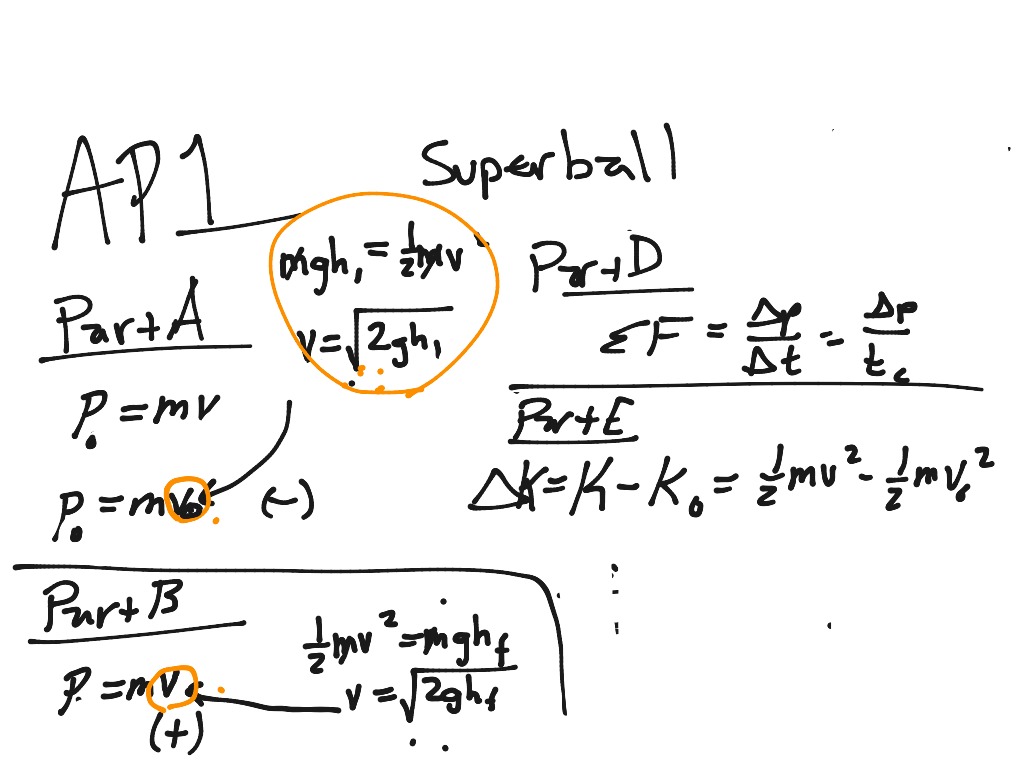 AP1
Superball
mgh₁ = ½mv²
v = √2gh₁
Part A
P₀ = mv
P₀ = mv₀ (-)
Part B
½mv² = mgh_f
P = mv
v = √2gh_f
(+)
Part D
ΣF = Δp/Δt = Δp/t_c
Part E
ΔK = K - K₀ = ½mv² - ½mv₀²